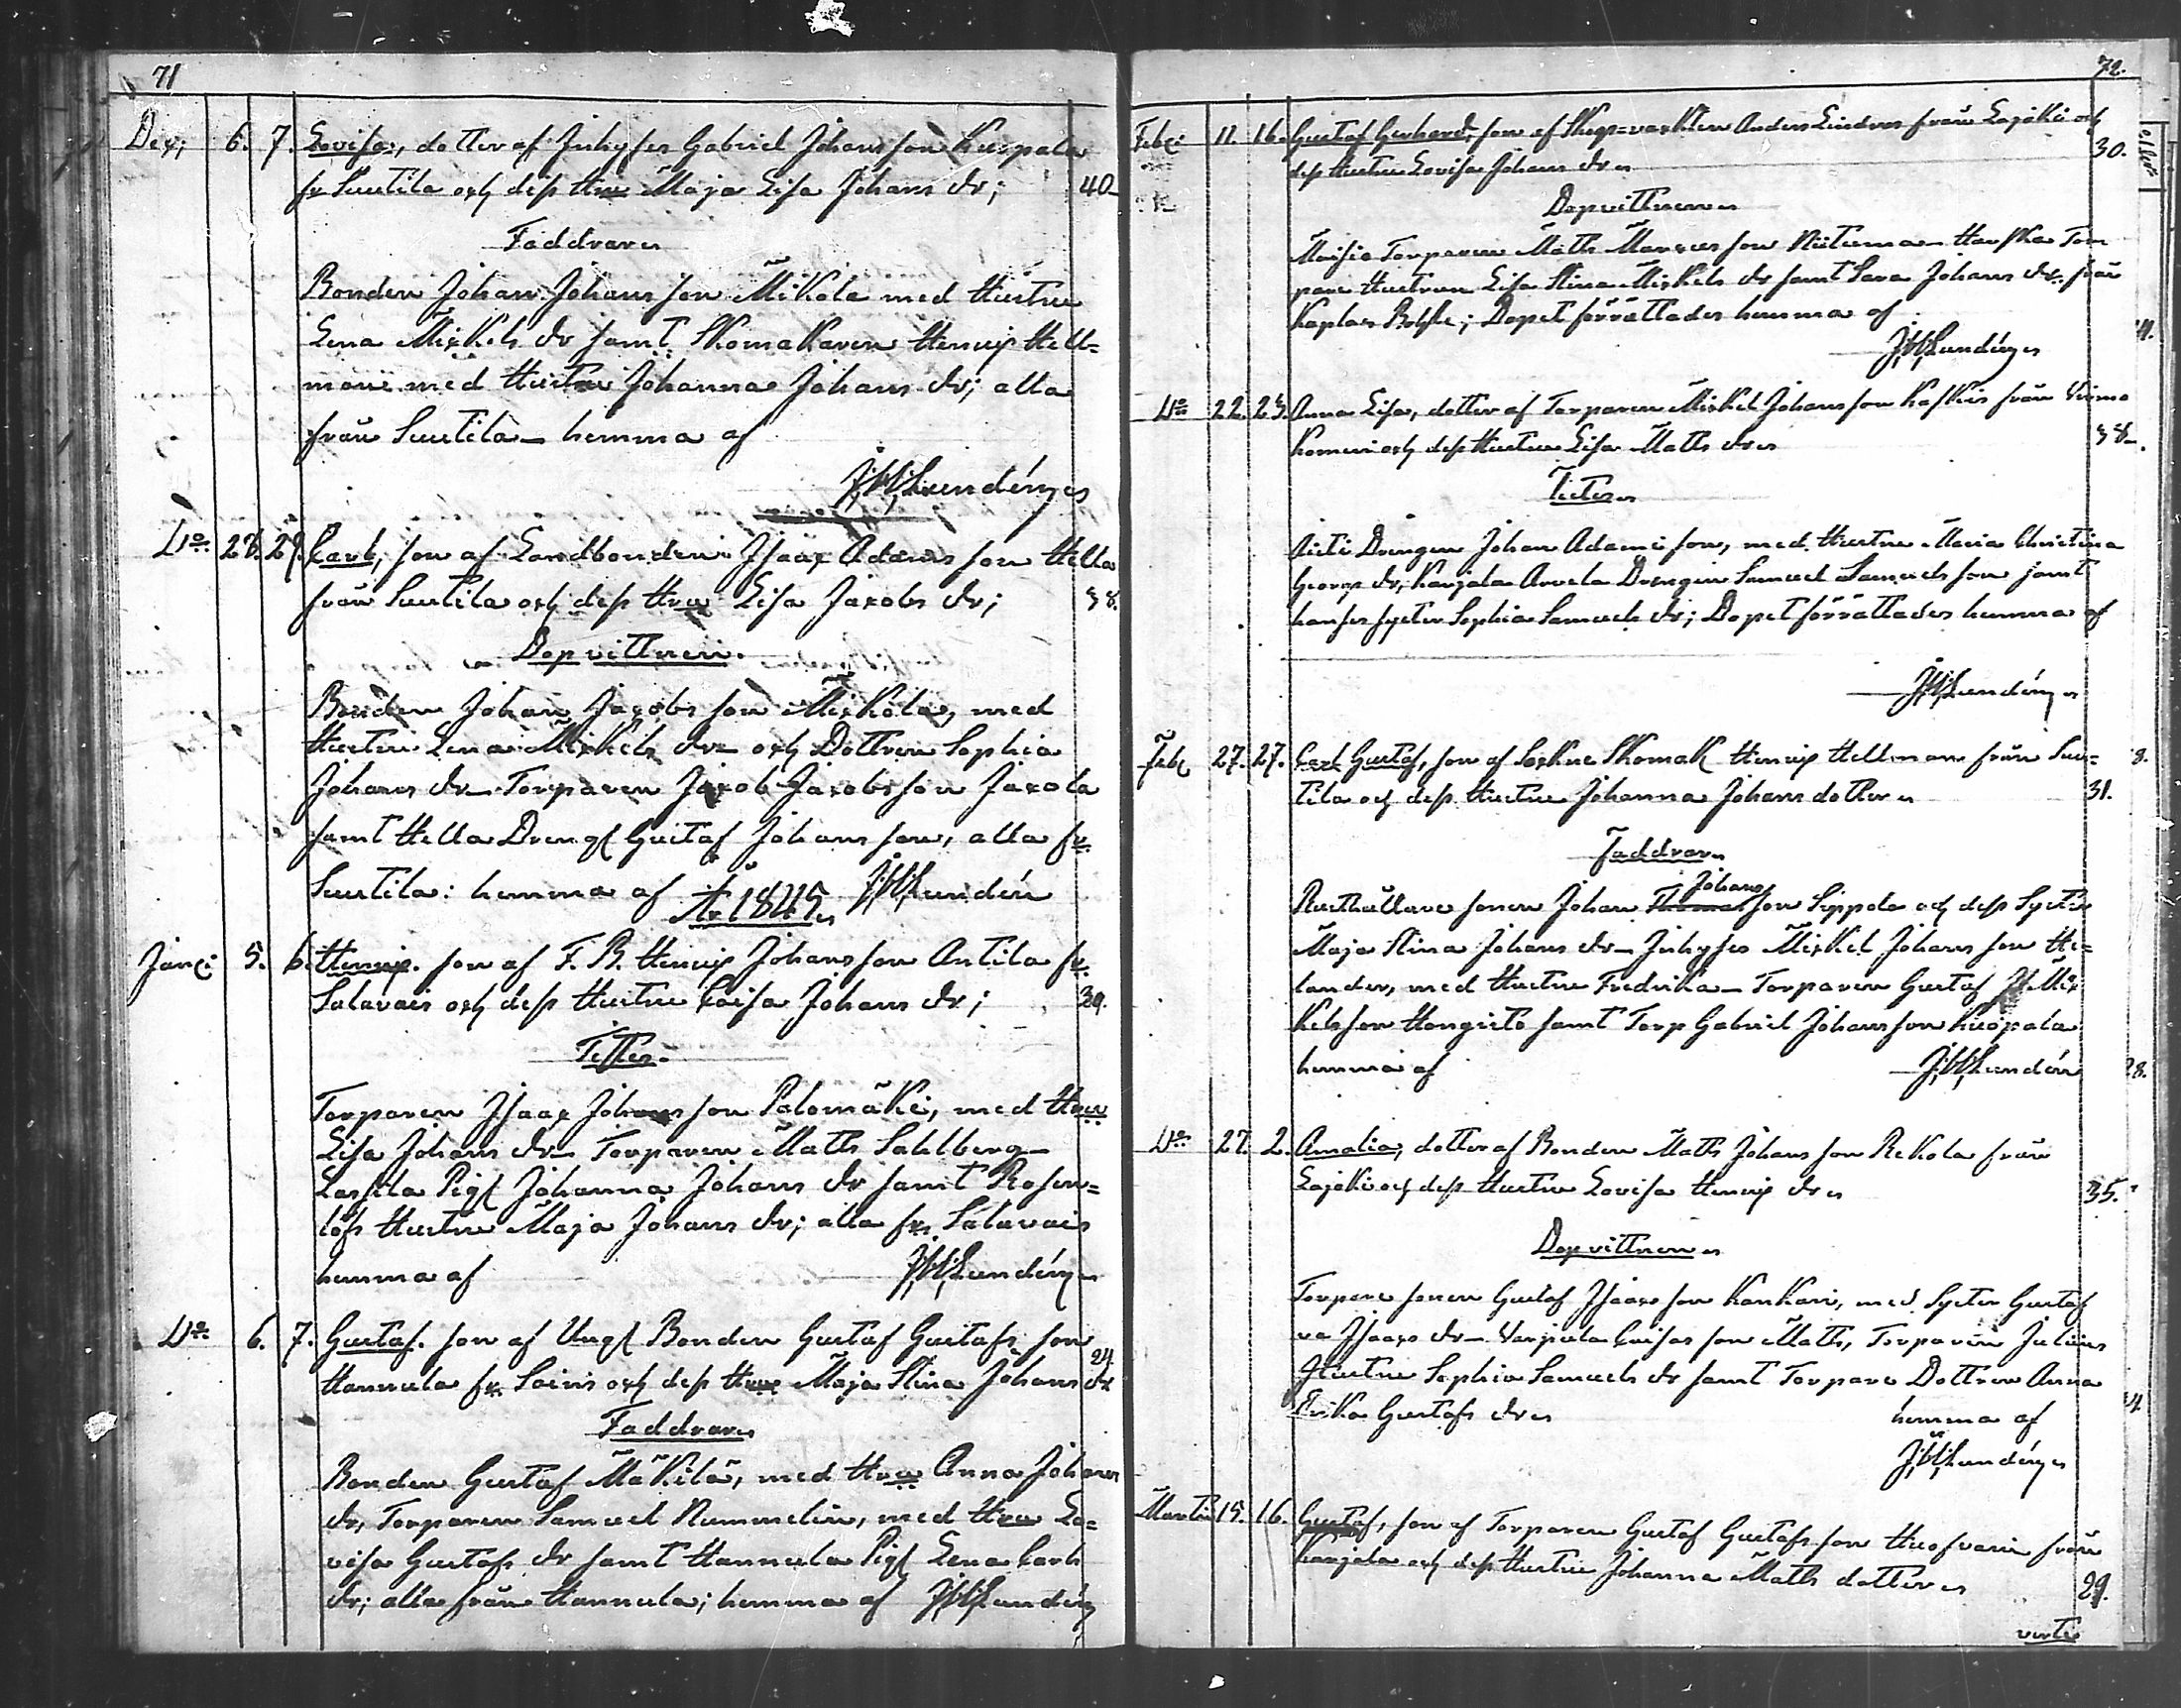 71
Dec; 6. 7. Lovisa, dotter af Inhyses Gabriel Johansson Kuopala
fr Suutila och dess Hru Maja Lisa Johans dr; 40
Faddrar
Bonden Johan Johansson Mikola med Hustru
Lena Mickels dr samt Skomakaren Henric Hell=
man med Hustru Johanna Johans dr; alla
från Suutila hemma af
JWLundén
Do 28. 29. Carl, son af Landbonden Isaac Adamsson Hella
från Suutila och dess Hru Lisa Jacobs dr; 38.
Dopvittnen
Bonden Johan Jacobsson Mickola, med
Hustru Lena Mickels dr och Dottren Sophia
Johans dr Torparen Jacob Jacobsson Jacola
samt Hella Dreng Gustaf Johansson, alla fr.
Suutila: hemma af JWLundén
År 1845
Janr: 5. 6. Henric. son af F. B. Henric Johansson Antila fr.
Salavais och dess Hustru Caisa Johans dr; 30.
Testes
Torparen Isaac Johansson Palomäki, med Hru
Lisa Johans dr Torparen Matts Sahlberg
Lassila Pig Johanna Johans dr samt Rosen=
löfs Hustru Maja Johans dr; alla fr. Salavais
hemma af JWLundén
Do 6. 7. Gustaf. son af Ung Bonden Gustaf Gustafsson 24
Hannula fr. Sainis och dess Hru Maja Stina Johans dr
Faddrar
Bonden Gustaf Mäkilä, med Hru Anna Johans
dr, Torparen Samuel Nummelin, med Hru Lo=
visa Gustafs dr samt Hannula Pig Lena Carls
dr; alla från Hannula; hemma af JWLundén
72.
Febr: 11. 16. Gustaf Gerhard, son af Anders Lindros från Lajoki och
dess Hustru Lovisa Johans dr 30.
Dopvittnen
Torparen Matts Marcusson Niituma Tor
pare Hustrun Lisa Stina Mickels dr samt Sara Johans dr från
Dopet förrättades hemma af
JWLundén
Do 22. 23. Anna Lisa, dotter af Torparen Mickel Johansson från Virmo
och dess Hustru Lisa Matts dr 38
Testes
Drengen Johan Adamsson, med Hustru Maria Christina
Georgs dr, Karjala Anvela Drengen Samuel Samuelsson samt
hanses syster Sophia Samuels dr; Dopet förrättades hemma af
JWLundén
Febr 27. 27. Carl Gustaf, son af Sockne Skomak Henric Hellman från Suu=
tila och dess Hustru Johanna Johans dotter 31.
Faddrar
Johans
Rusthållare sonen Johan son Sippola och dess Syster
Maja Stina Johans dr Inhyses Mickel Johansson He=
lander, med Hustru Fredrika Torparen Gustaf Mic
kelsson Hongisto samt Torp Gabriel Johansson Kuopala
hemma af JWLundén
Do 27. 2. Amalia, dotter af Bonden Matts Johansson Rekola från
Lajoki och dess Hustru Lovisa Henrics dr 35.
Dopvittnen
Torpare sonen Gustaf Isaacsson Kankari, med Syster Gustaf
va Isaacs dr Varjula Caisas son Matts, Torparen Julius
Hustru Sophia Samuels dr samt Torpare Dottren Anna
Erika Gustafs dr hemma af
JWLundén
Martii 15. 16. Gustaf, son af Torparen Gustaf Gustafsson från
Karjala och dess Hustru Johanna Matts dotter 29.
verte